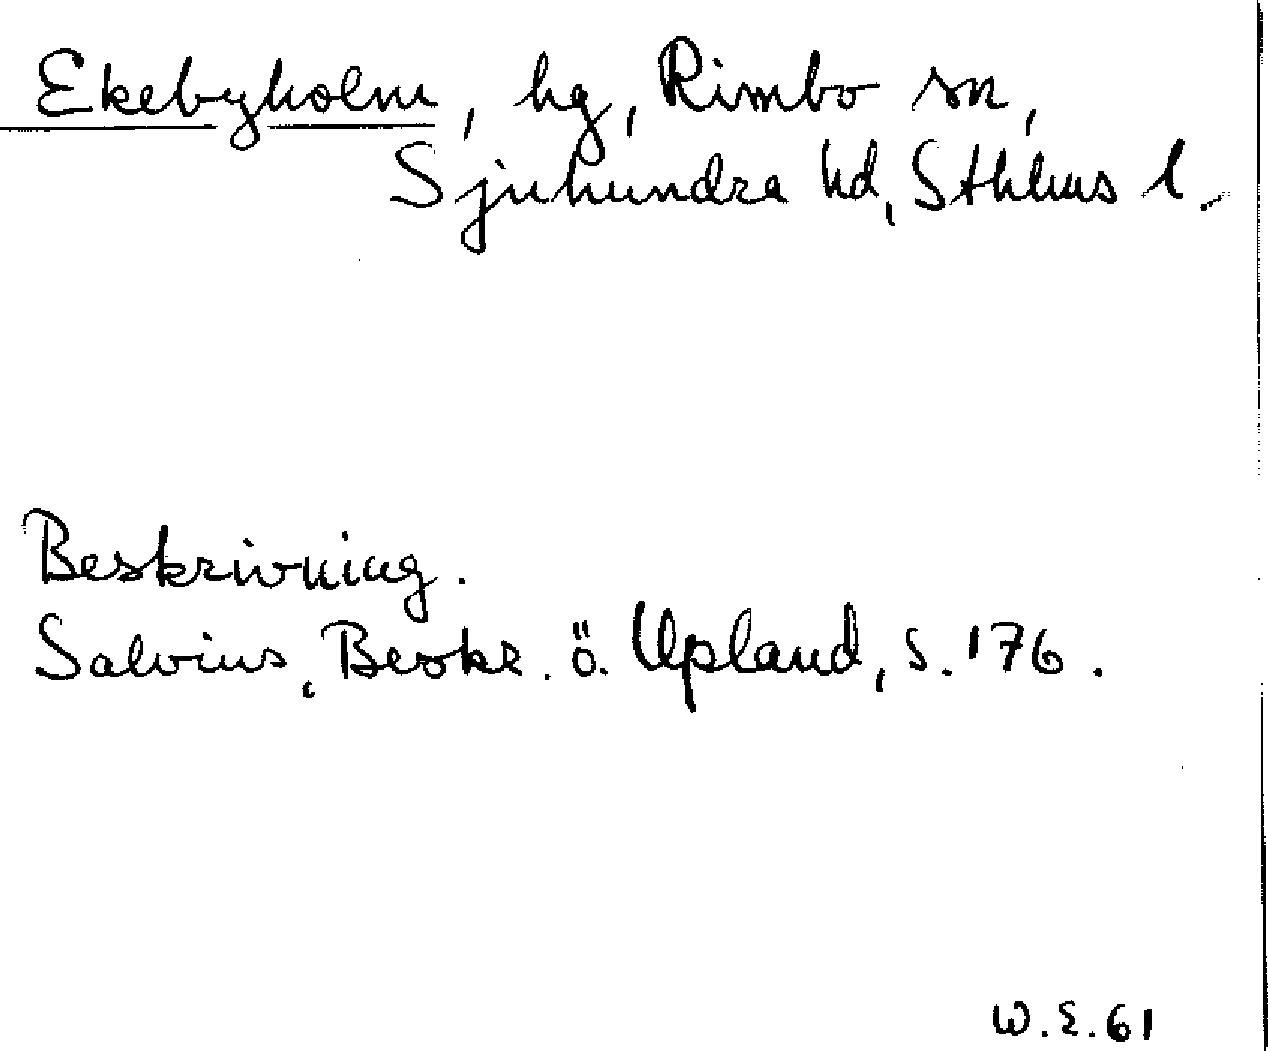 Ekebyholm, hg, Rimbo sn,
Sjuhundra hd, Sthlms l.
Beskrivning.
Salvius, Beskr. ö. Upland, s. 176.
W.E.61